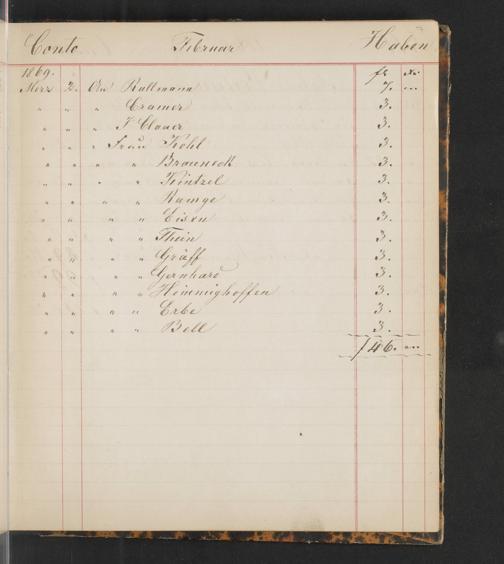 Conto Februar Haben
1869. fl. xr.
Merz 2. An Rullmann 7. "
" " " Cramer 3.
" " " J Clauer 3.
" " " Frau Kohl 3.
" " " " Brauneck 3.
" " " " Kintzel 3.
" " " " Ramge 3.
" " " " Eisen 3.
" " " " Thein 3.
" " " " Gräff 3.
" " " " Gernhard 3.
" " " " Himmighoffen 3.
" " " " Erbe 3.
" " " " Bell 3.
f 46. "